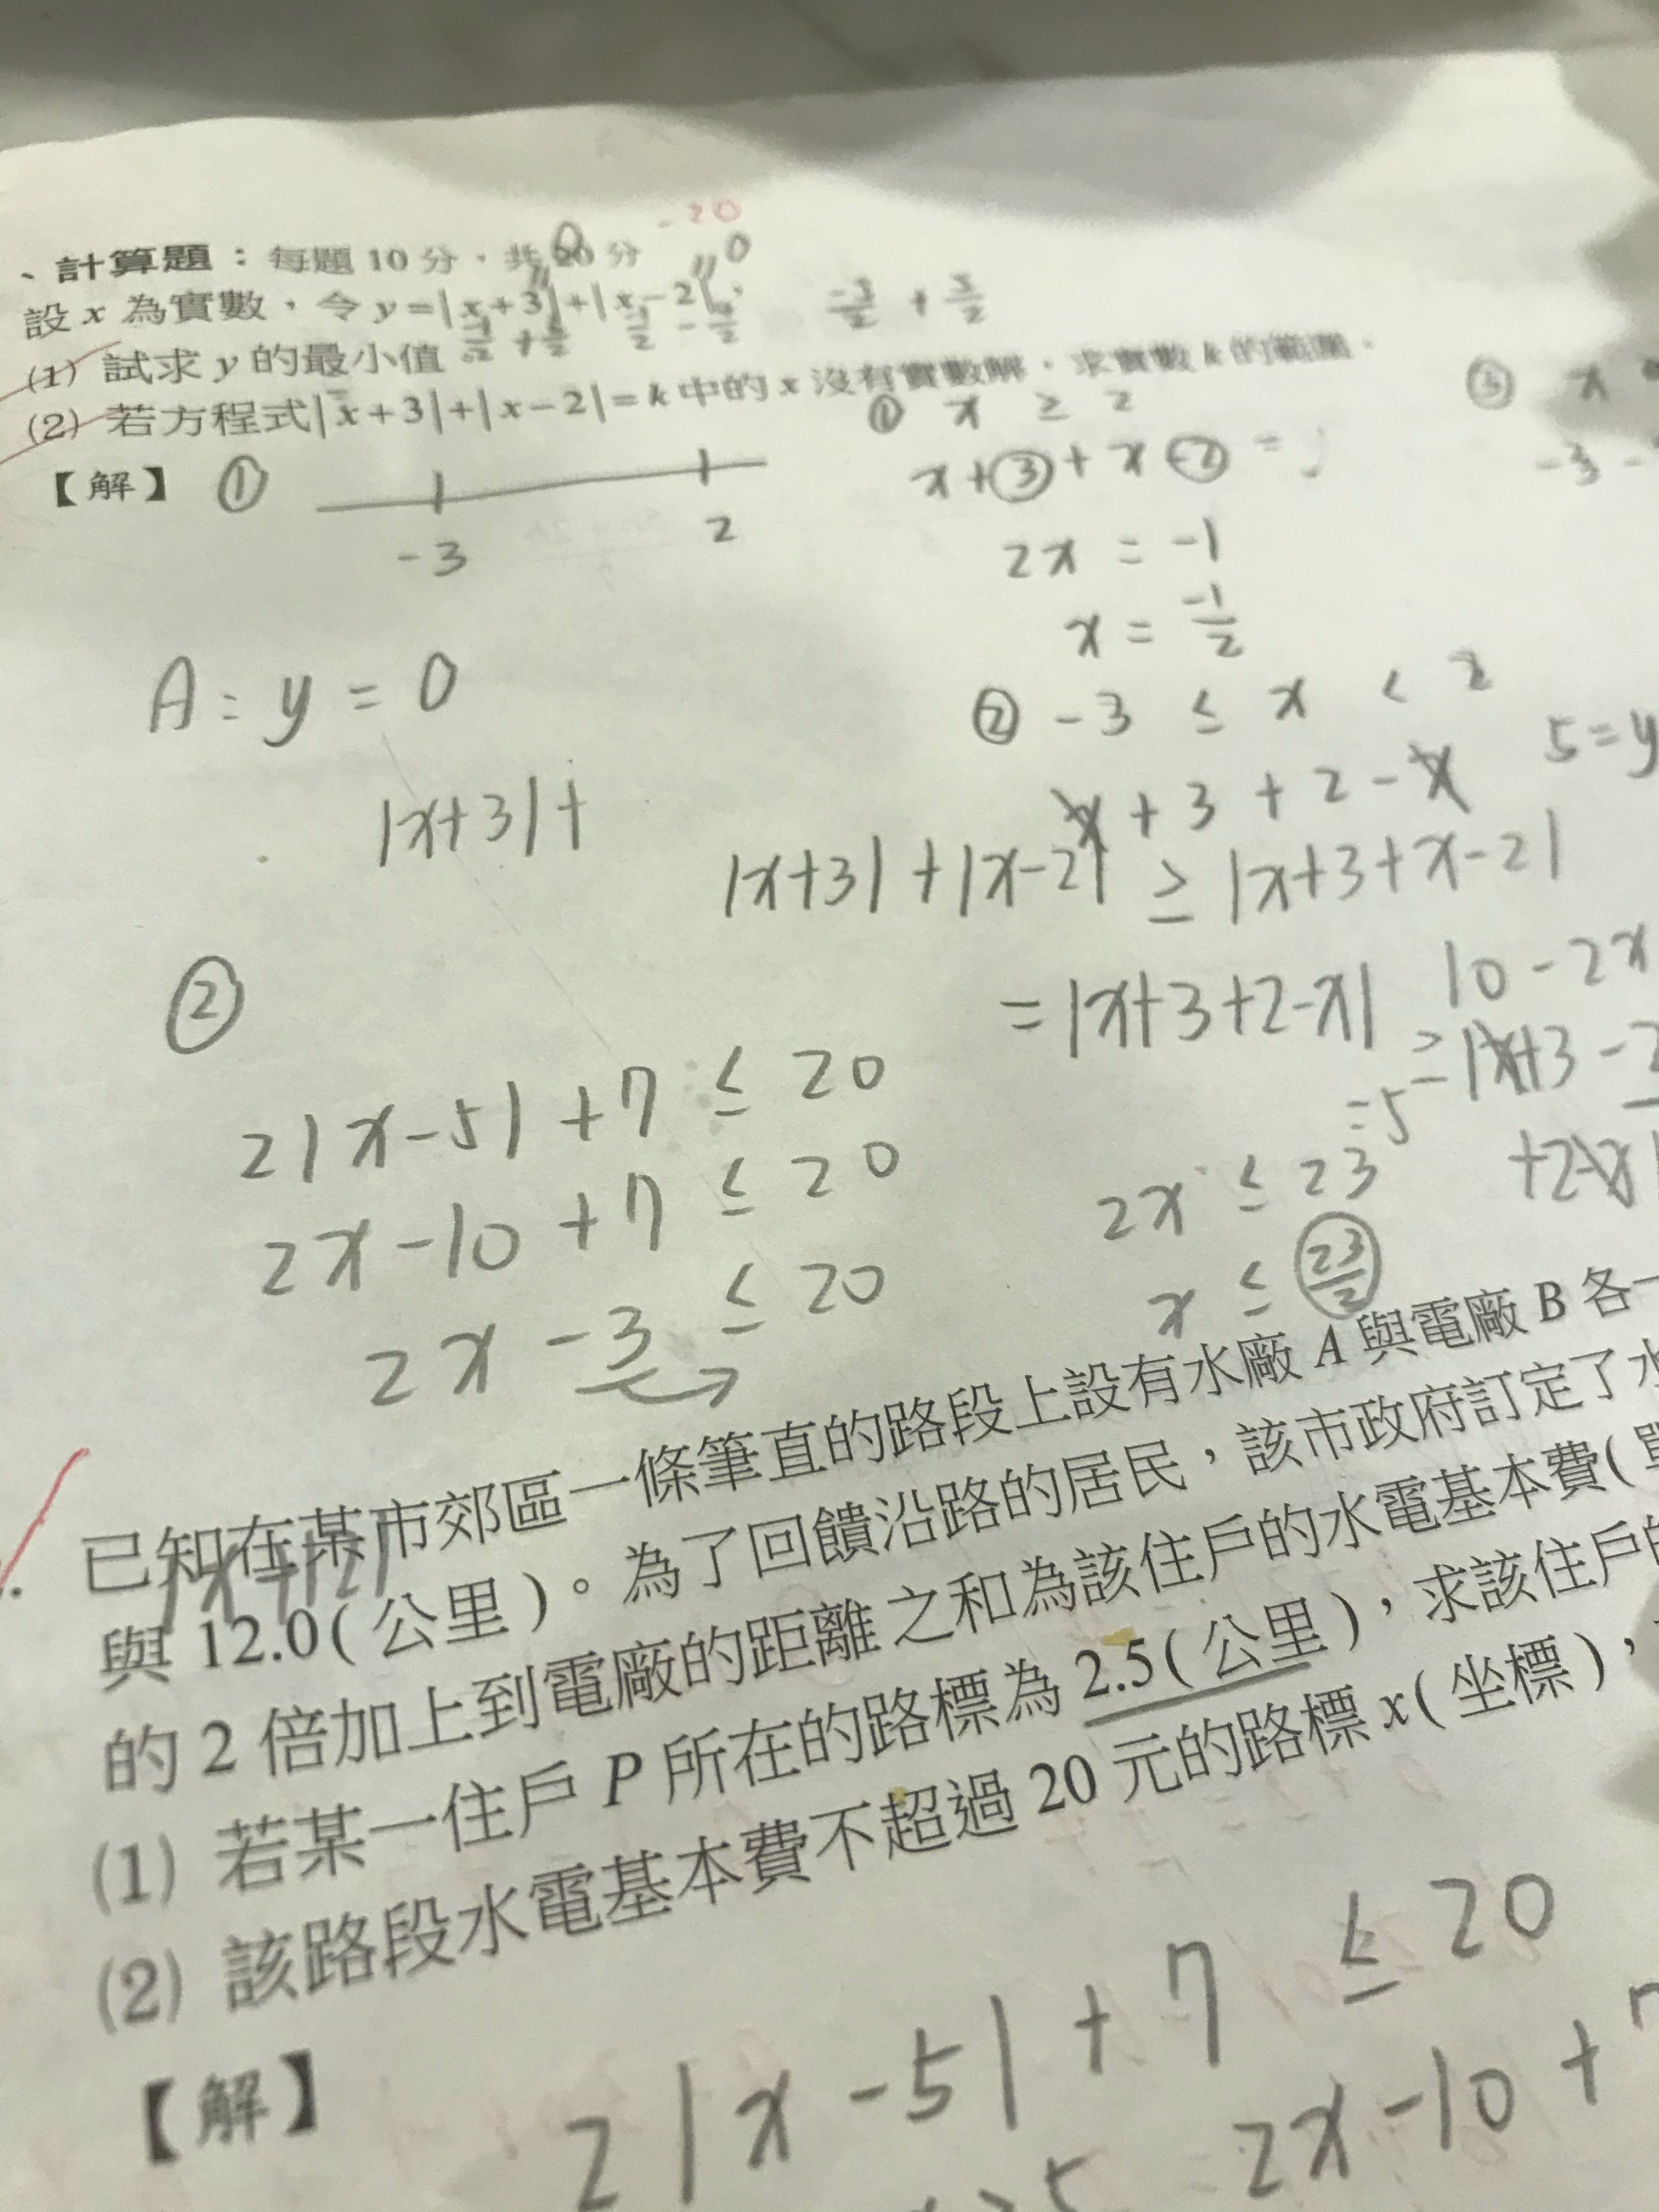 -20
、計算題：每題 10 分，共 20 分
0
0
設 x 為實數，令 y=|x+3|+|x-2|，
-3/2 + 3/2
(1) 試求 y 的最小值
(2) 若方程式|x+3|+|x-2|=k 中的 x 沒有實數解，求實數 k 的範圍．
① x ≥ 2
③ x
【解】 ①
-3 2
x+3+x-2 =
-3 -
2x = -1
x = -1/2
A: y = 0
② -3 ≤ x < 2
5=y
|x+3|+
x+3+2-x
|x+3|+|x-2| ≥ |x+3+x-2|
②
= |x+3+2-x|
10-2x
2|x-5|+7 ≤ 20
≥|x+3-2
=5
+2-x|
2x-10+7 ≤ 20
2x ≤ 23
2x-3 ≤ 20
x ≤ 23/2
已知在某市郊區一條筆直的路段上設有水廠 A 與電廠 B 各一
與 12.0(公里)。為了回饋沿路的居民，該市政府訂定了水
的 2 倍加上到電廠的距離之和為該住戶的水電基本費(單
(1) 若某一住戶 P 所在的路標為 2.5(公里)，求該住戶的
(2) 該路段水電基本費不超過 20 元的路標 x(坐標)，
【解】
2|x-5|+7 ≤ 20
2x-10+7